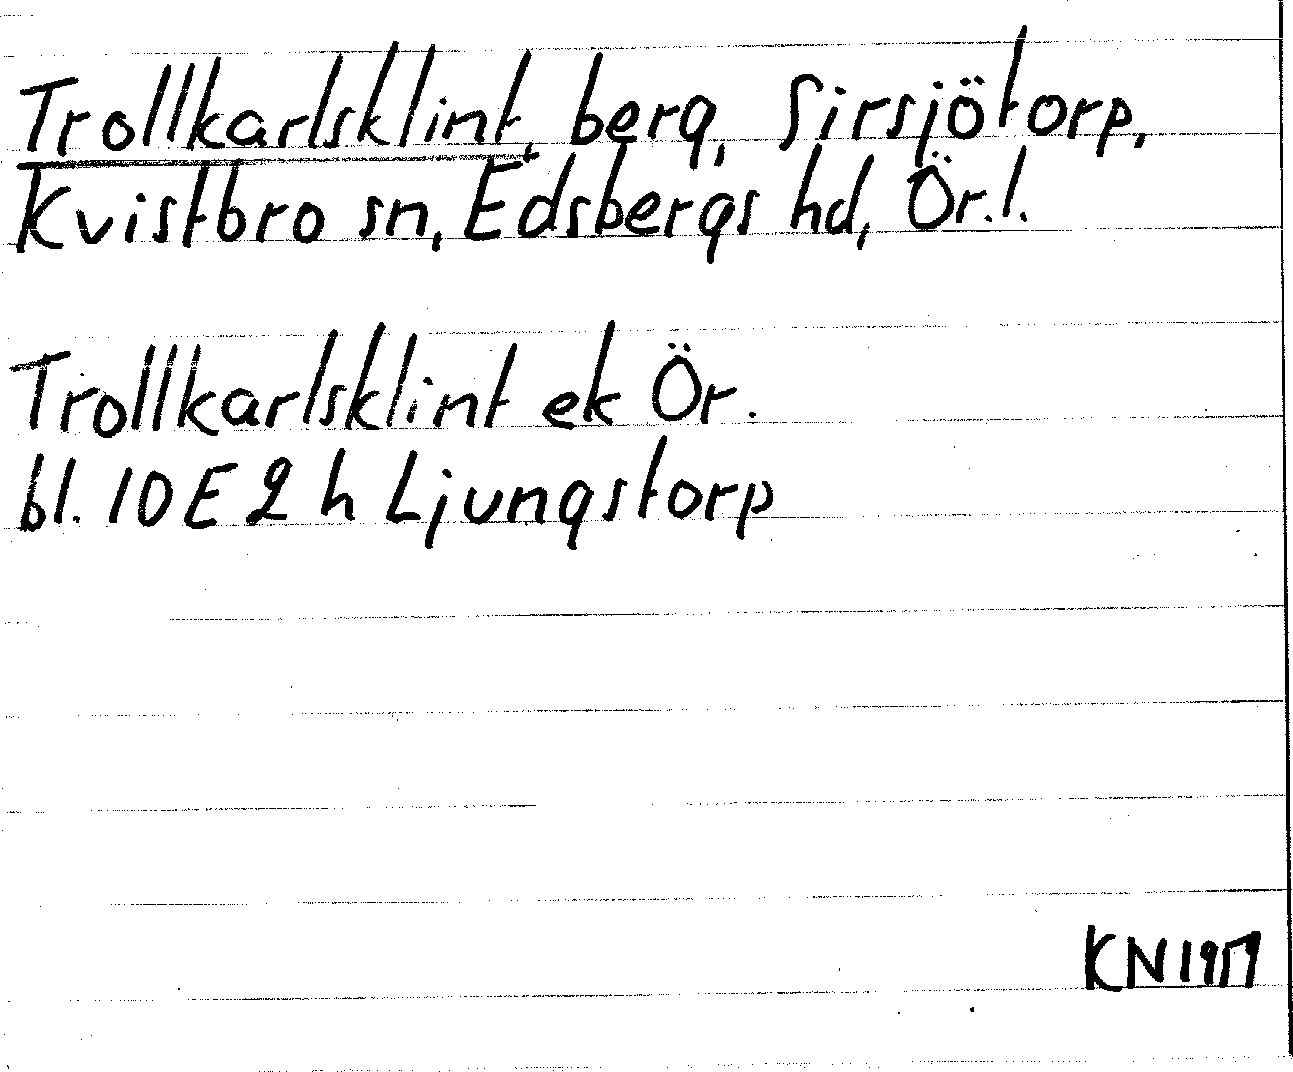 Trollkarlsklint, berg, Sirsjötorp,
Kvistbro sn, Edsbergs hd, Ör.l.
Trollkarlsklint ek Ör.
bl. 10E 2 h Ljungstorp
KN